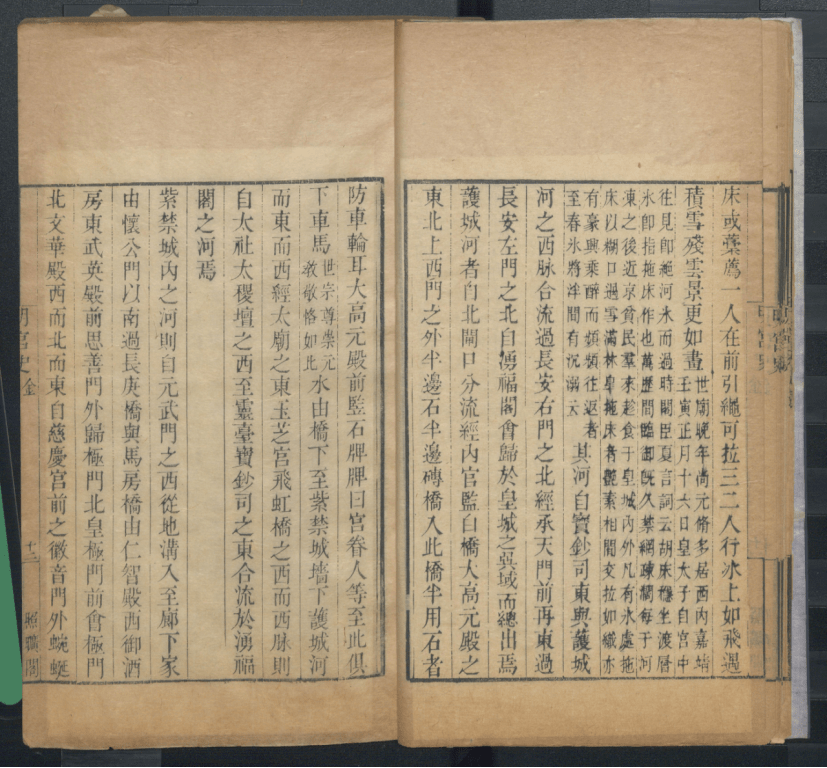 床或藁薦一人在前引繩可拉三二人行冰上如飛遇
積雪殘雲景更如畫世廟晚年尚元脩多居西內嘉靖
壬寅正月十六日皇太子自宮中
往見卽絶河氷而過時閣臣夏言詞云胡床穩坐渡層
氷卽指拖床作也萬歷間臨御旣久禁網疎濶每于河
凍之後近京貧民羣來趁食于皇城內外凡有氷處拖
床以糊口遇雪滿林皐拖床者艷素相間交拉如織亦
有豪興乘醉而頻頻往返者
至春氷將泮間有沉溺云其河自寶鈔司東與護城
河之西脉合流過長安右門之北經承天門前再東過
長安左門之北自湧福閣會歸於皇城之巽域而總出焉
護城河者自北閘口分流經內官監白橋大高元殿之
東北上西門之外半邊石半邊磚橋入此橋半用石者
防車輪耳大高元殿前監石牌牌曰宮眷人等至此俱
下車馬世宗尊崇元
敎敬恪如此水由橋下至紫禁城墻下護城河
而東而西經太廟之東玉芝宮飛虹橋之西而西脉則
自太社太稷壇之西至靈臺寶鈔司之東合流於湧福
閣之河焉
紫禁城內之河則自元武門之西從地溝入至廊下家
由懷公門以南過長庚橋與馬房橋由仁智殿西御酒
房東武英殿前思善門外歸極門北皇極門前會極門
北文華殿西而北而東自慈慶宮前之徽音門外蜿蜒
明宮史金
十三
照曠閣